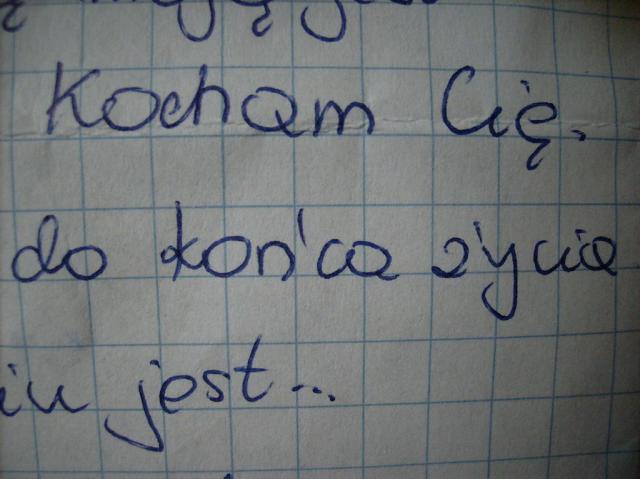 Kocham Cię.
do końca życia
iu jest...